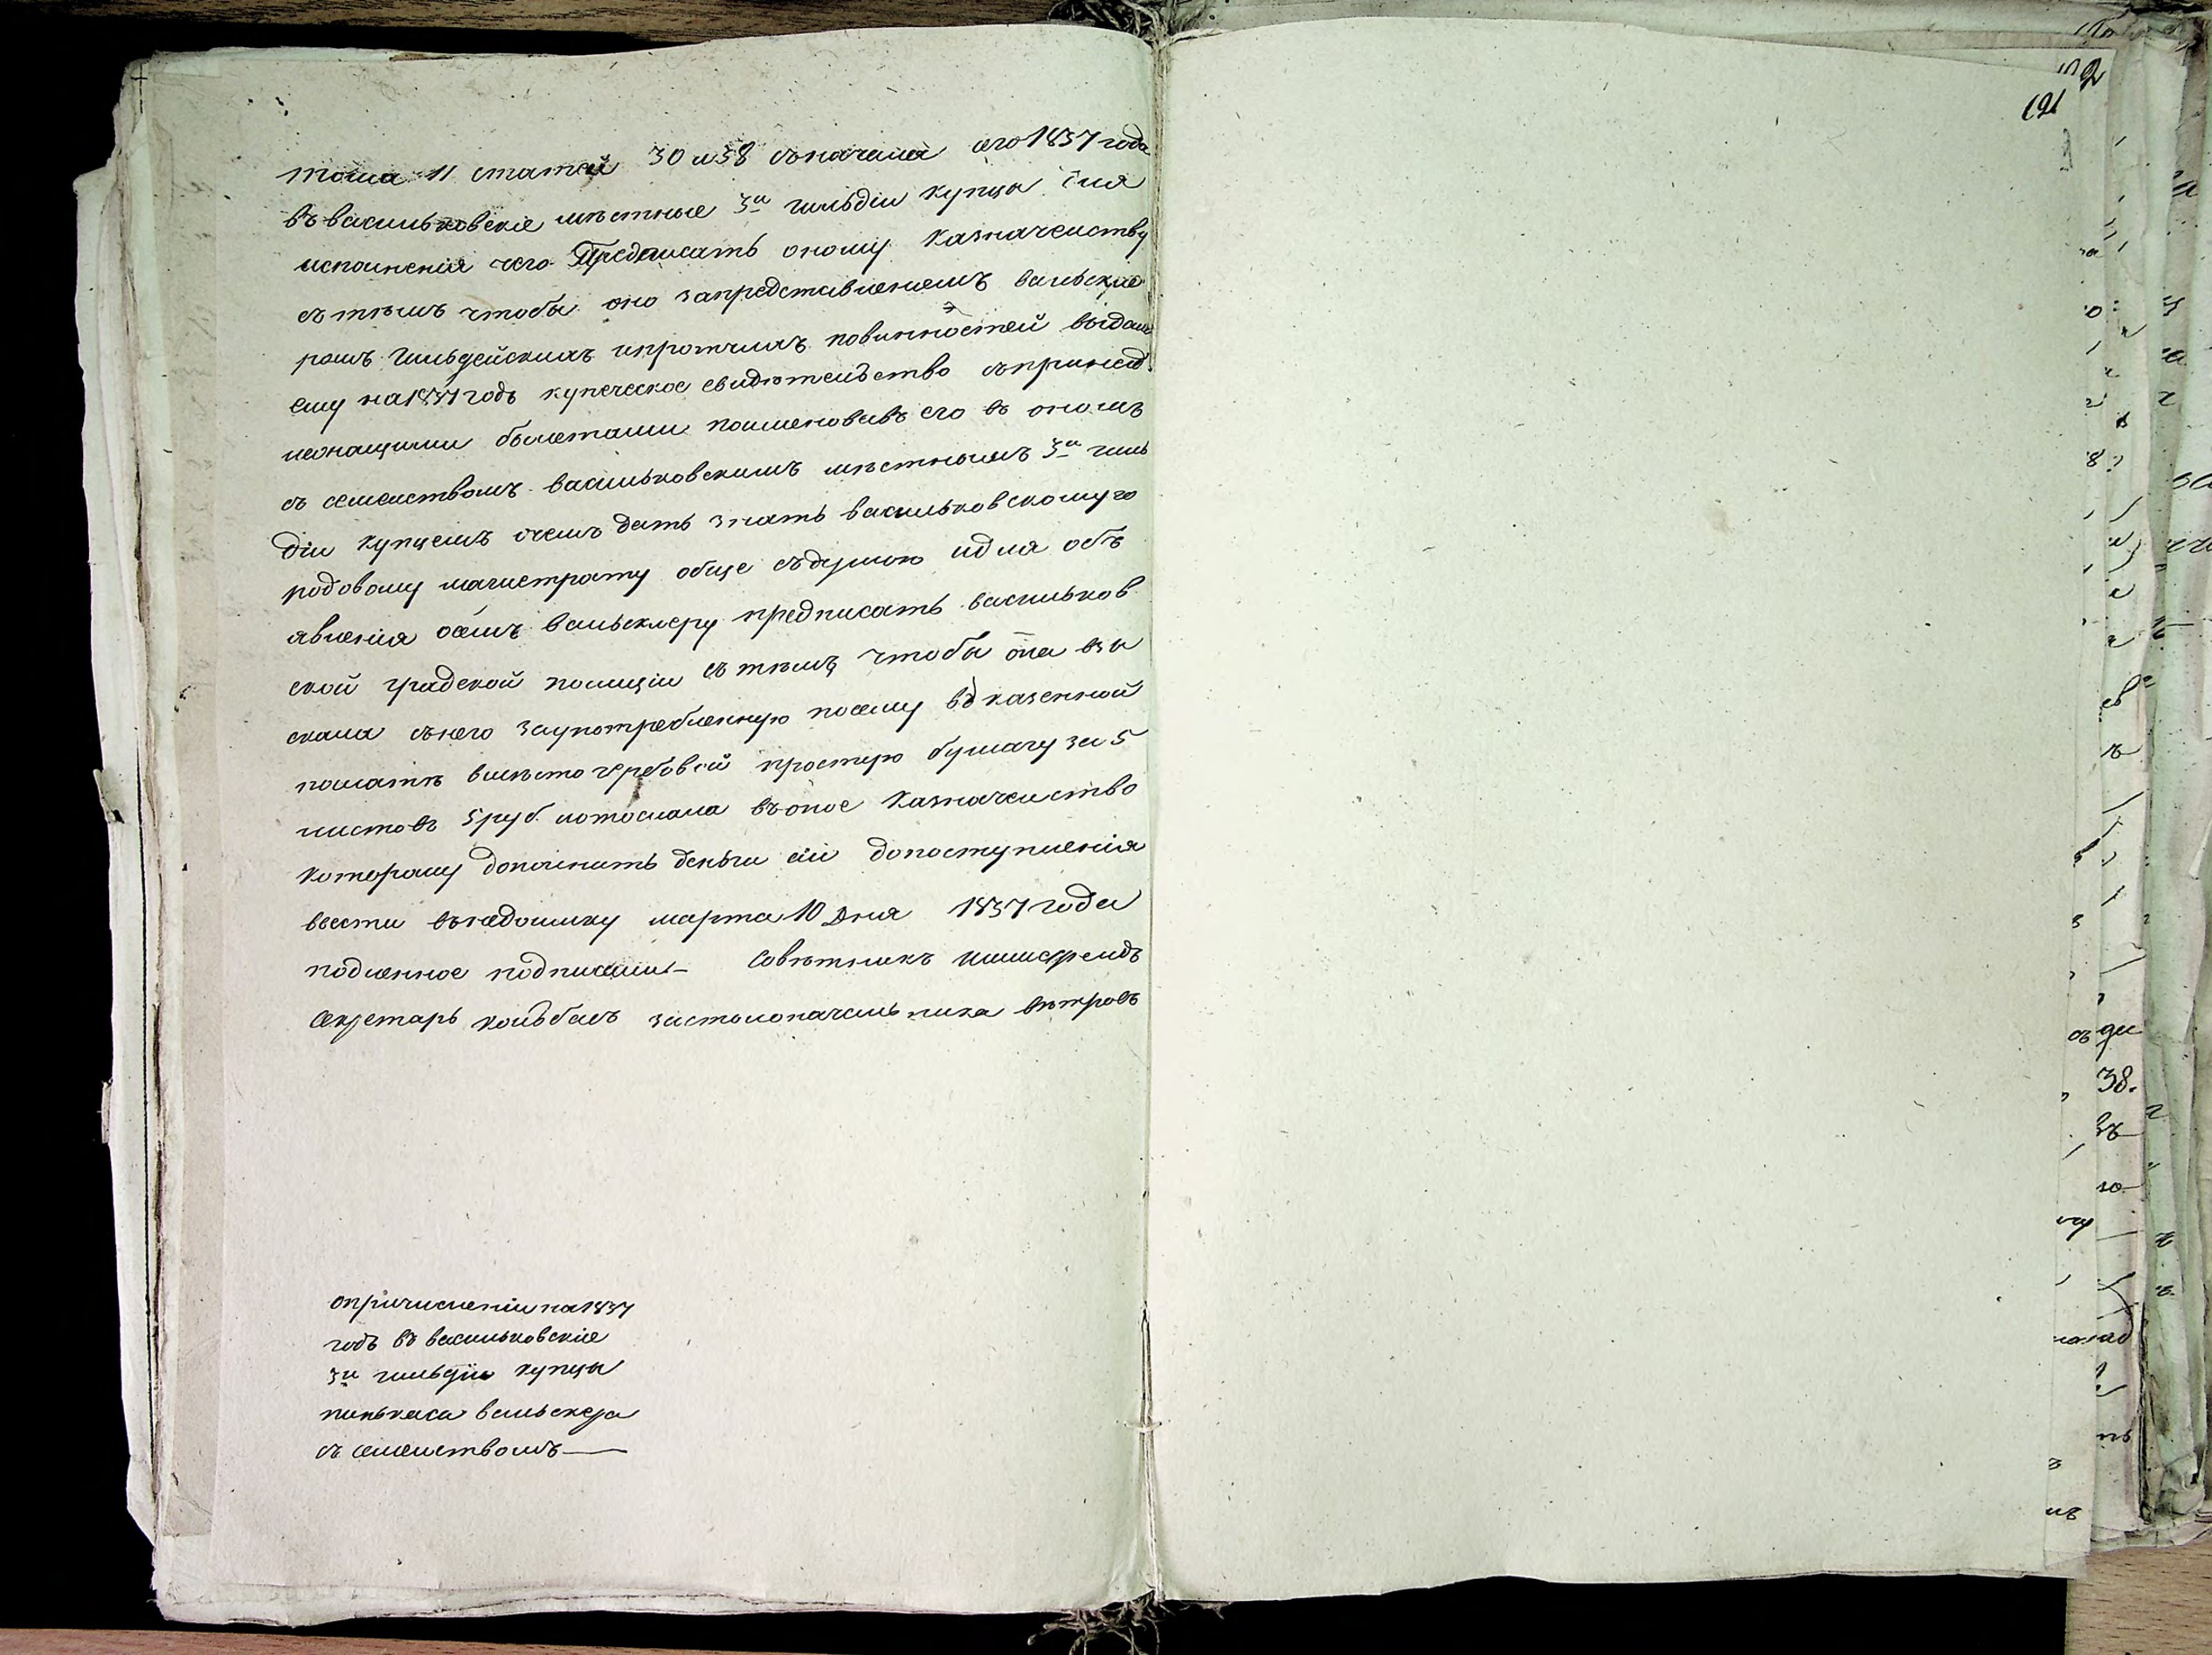 тома 11 статей 30 и 38 сначала сего 1837 года
въ васильковскіе местные 3й гильдіи купцы для
исполненія чего Предписать оному Казначейству
съ темъ чтобы оно запредставленіемъ вальскле
ромъ Гильдейскихъ ипротчихъ повинностей выдало
ему на 1837 годъ купеческое свидетельство спринад
лежащими билетами поименовавъ его въ ономъ
съ семействомъ васильковскимъ местнымъ 3й гиль
діи купцемъ очемъ дать знать васильковскому го
родовому магистрату обще съдумою идля объ
явленія осемъ вальсклеру предписать васильков
ской градской полиціи съ темъ чтобы она взы
скала снего заупотребленную посему въ казенной
палате вместо гербовой простую бумагу за 5
листовъ 5 руб. иотослала въоное Казначейство
которому пополнить деньги сіи допоступленія
ввести внедоимку марта 10 Дня 1837 года
подленное подписали Советникъ
Секретарь застолоначальника ветровъ
опричисленіи на 1837
годъ въ васильковскіе
3й гильдіи купцы
пинькаса вальсклера
съ семействомъ
191
38.